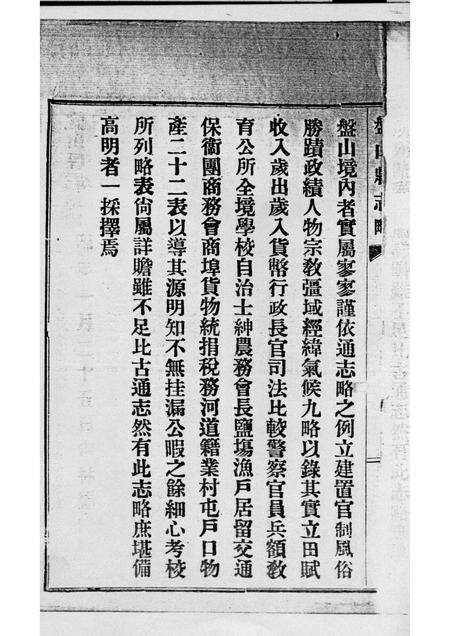 盤山縣志略
盤山境內者實屬寥寥謹依通志略之例立建置官制風俗
勝蹟政績人物宗教彊域經緯氣候九略以錄其實立田賦
收入歲出歲入貨幣行政長官司法比較警察官員兵額教
育公所全境學校自治士紳農務會長鹽塲漁戶居留交通
保衞團商務會商埠貨物統捐稅務河道籍業村屯戶口物
產二十二表以導其源明知不無挂漏公暇之餘細心考校
所列略表尙屬詳贍雖不足比古通志然有此志略庶堪備
高明者一採擇焉